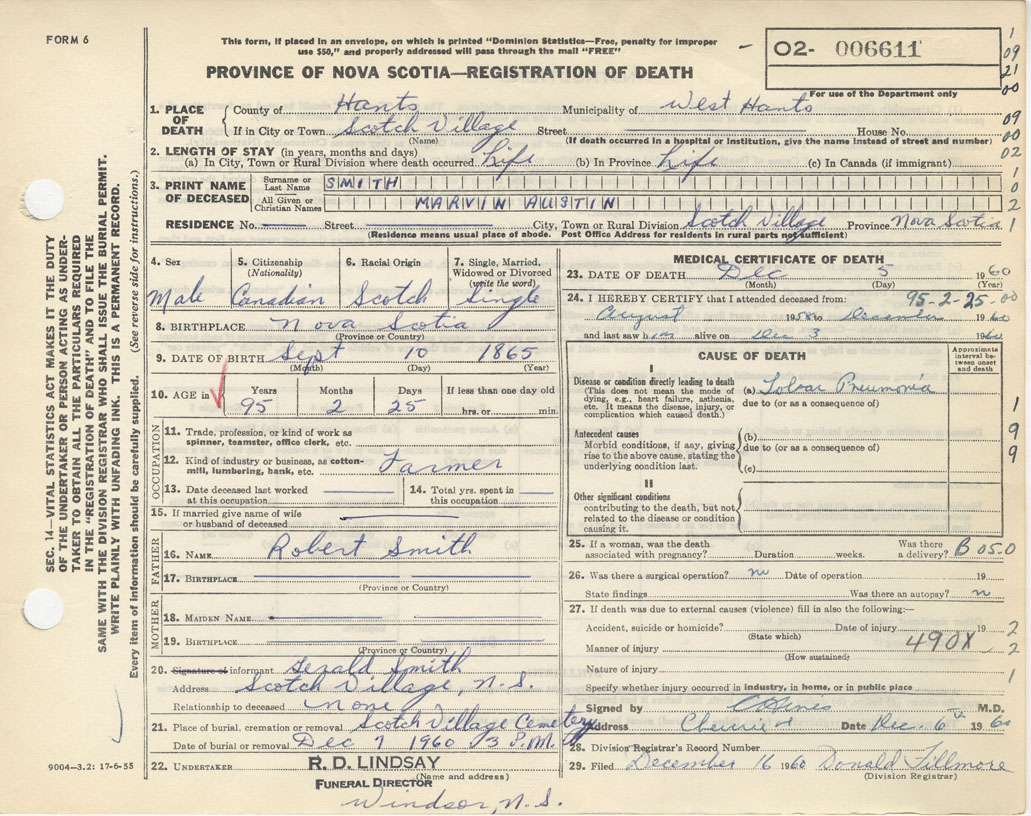 FORM 6
This form, if placed in an envelope, on which is printed "Dominion Statistics—Free, penalty for improper
use $50," and properly addressed will pass through the mail "FREE"
PROVINCE OF NOVA SCOTIA—REGISTRATION OF DEATH
02- 006611
For use of the Department only
1
09
21
00
09
00
02
1
0
2
1
1. PLACE OF DEATH
County of Hants Municipality of West Hants
If in City or Town Scotch Village Street House No.
(Name) (If death occurred in a hospital or Institution, give the name instead of street and number)
2. LENGTH OF STAY (in years, months and days)
(a) In City, Town or Rural Division where death occurred Life (b) In Province Life (c) In Canada (if immigrant)
3. PRINT NAME OF DECEASED
Surname or Last Name SMITH
All Given or Christian Names MARVIN AUSTIN
RESIDENCE No. Street City, Town or Rural Division Scotch Village Province Nova Scotia
(Residence means usual place of abode. Post Office Address for residents in rural parts not sufficient)
4. Sex 5. Citizenship (Nationality) 6. Racial Origin 7. Single, Married, Widowed or Divorced (write the word)
Male Canadian Scotch Single
8. BIRTHPLACE Nova Scotia
(Province or Country)
9. DATE OF BIRTH Sept 10 1865
(Month) (Day) (Year)
10. AGE in Years Months Days If less than one day old
95 2 25 hrs. or min.
OCCUPATION
11. Trade, profession, or kind of work as
spinner, teamster, office clerk, etc.
12. Kind of industry or business, as cotton-
mill, lumbering, bank, etc. Farmer
13. Date deceased last worked
at this occupation
14. Total yrs. spent in
this occupation
15. If married give name of wife
or husband of deceased
FATHER
16. NAME Robert Smith
17. BIRTHPLACE
(Province or Country)
MOTHER
18. MAIDEN NAME
19. BIRTHPLACE
(Province or Country)
20. Signature of informant Gerald Smith
Address Scotch Village, N.S.
Relationship to deceased None
21. Place of burial, cremation or removal Scotch Village Cemetery
Date of burial or removal Dec 7 1960 3 P.M.
22. UNDERTAKER R. D. LINDSAY
(Name and address)
FUNERAL DIRECTOR
Windsor, N.S.
MEDICAL CERTIFICATE OF DEATH
23. DATE OF DEATH Dec 5 1960
(Month) (Day) (Year)
24. I HEREBY CERTIFY that I attended deceased from: 95-2-25-00
August 1958 to December 1960
and last saw him alive on Dec 3 1960
CAUSE OF DEATH
Approximate interval between onset and death
I
Disease or condition directly leading to death
(This does not mean the mode of
dying, e.g., heart failure, asthenia,
etc. It means the disease, injury, or
complication which caused death.)
(a) Lobar Pneumonia
due to (or as a consequence of)
Antecedent causes
Morbid conditions, if any, giving
rise to the above cause, stating the
underlying condition last.
(b)
due to (or as a consequence of)
(c)
II
Other significant conditions
contributing to the death, but not
related to the disease or condition
causing it.
1
9
9
25. If a woman, was the death
associated with pregnancy? Duration weeks. Was there a delivery? B 05.0
26. Was there a surgical operation? no Date of operation 19
State findings Was there an autopsy? n
27. If death was due to external causes (violence) fill in also the following:—
Accident, suicide or homicide? Date of injury 19 2
(State which)
Manner of injury 490X 2
(How sustained)
Nature of injury 1
Specify whether injury occurred in industry, in home, or in public place
Signed by M.D.
Address Date Dec. 6th 1960
28. Division Registrar's Record Number
29. Filed December 16 1960 Donald Fillmore
(Division Registrar)
SEC. 14—VITAL STATISTICS ACT MAKES IT THE DUTY
OF THE UNDERTAKER OR PERSON ACTING AS UNDER-
TAKER TO OBTAIN ALL THE PARTICULARS REQUIRED
IN THE "REGISTRATION OF DEATH" AND TO FILE THE
SAME WITH THE DIVISION REGISTRAR WHO SHALL ISSUE THE BURIAL PERMIT.
WRITE PLAINLY WITH UNFADING INK. THIS IS A PERMANENT RECORD.
Every item of information should be carefully supplied. (See reverse side for instructions.)
9004—3.2: 17-6-55